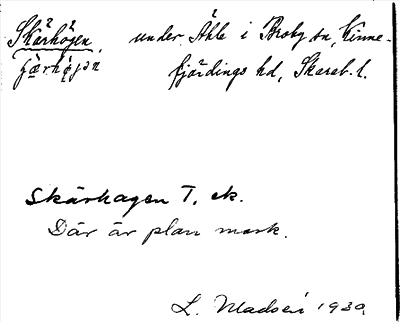 Skärhöjen, under Åhle i Broby sn, Kinne-
fjärdings hd, Skarab. l.
Skärhagen T. ek.
Där är plan mark.
L. Madsén 1930.